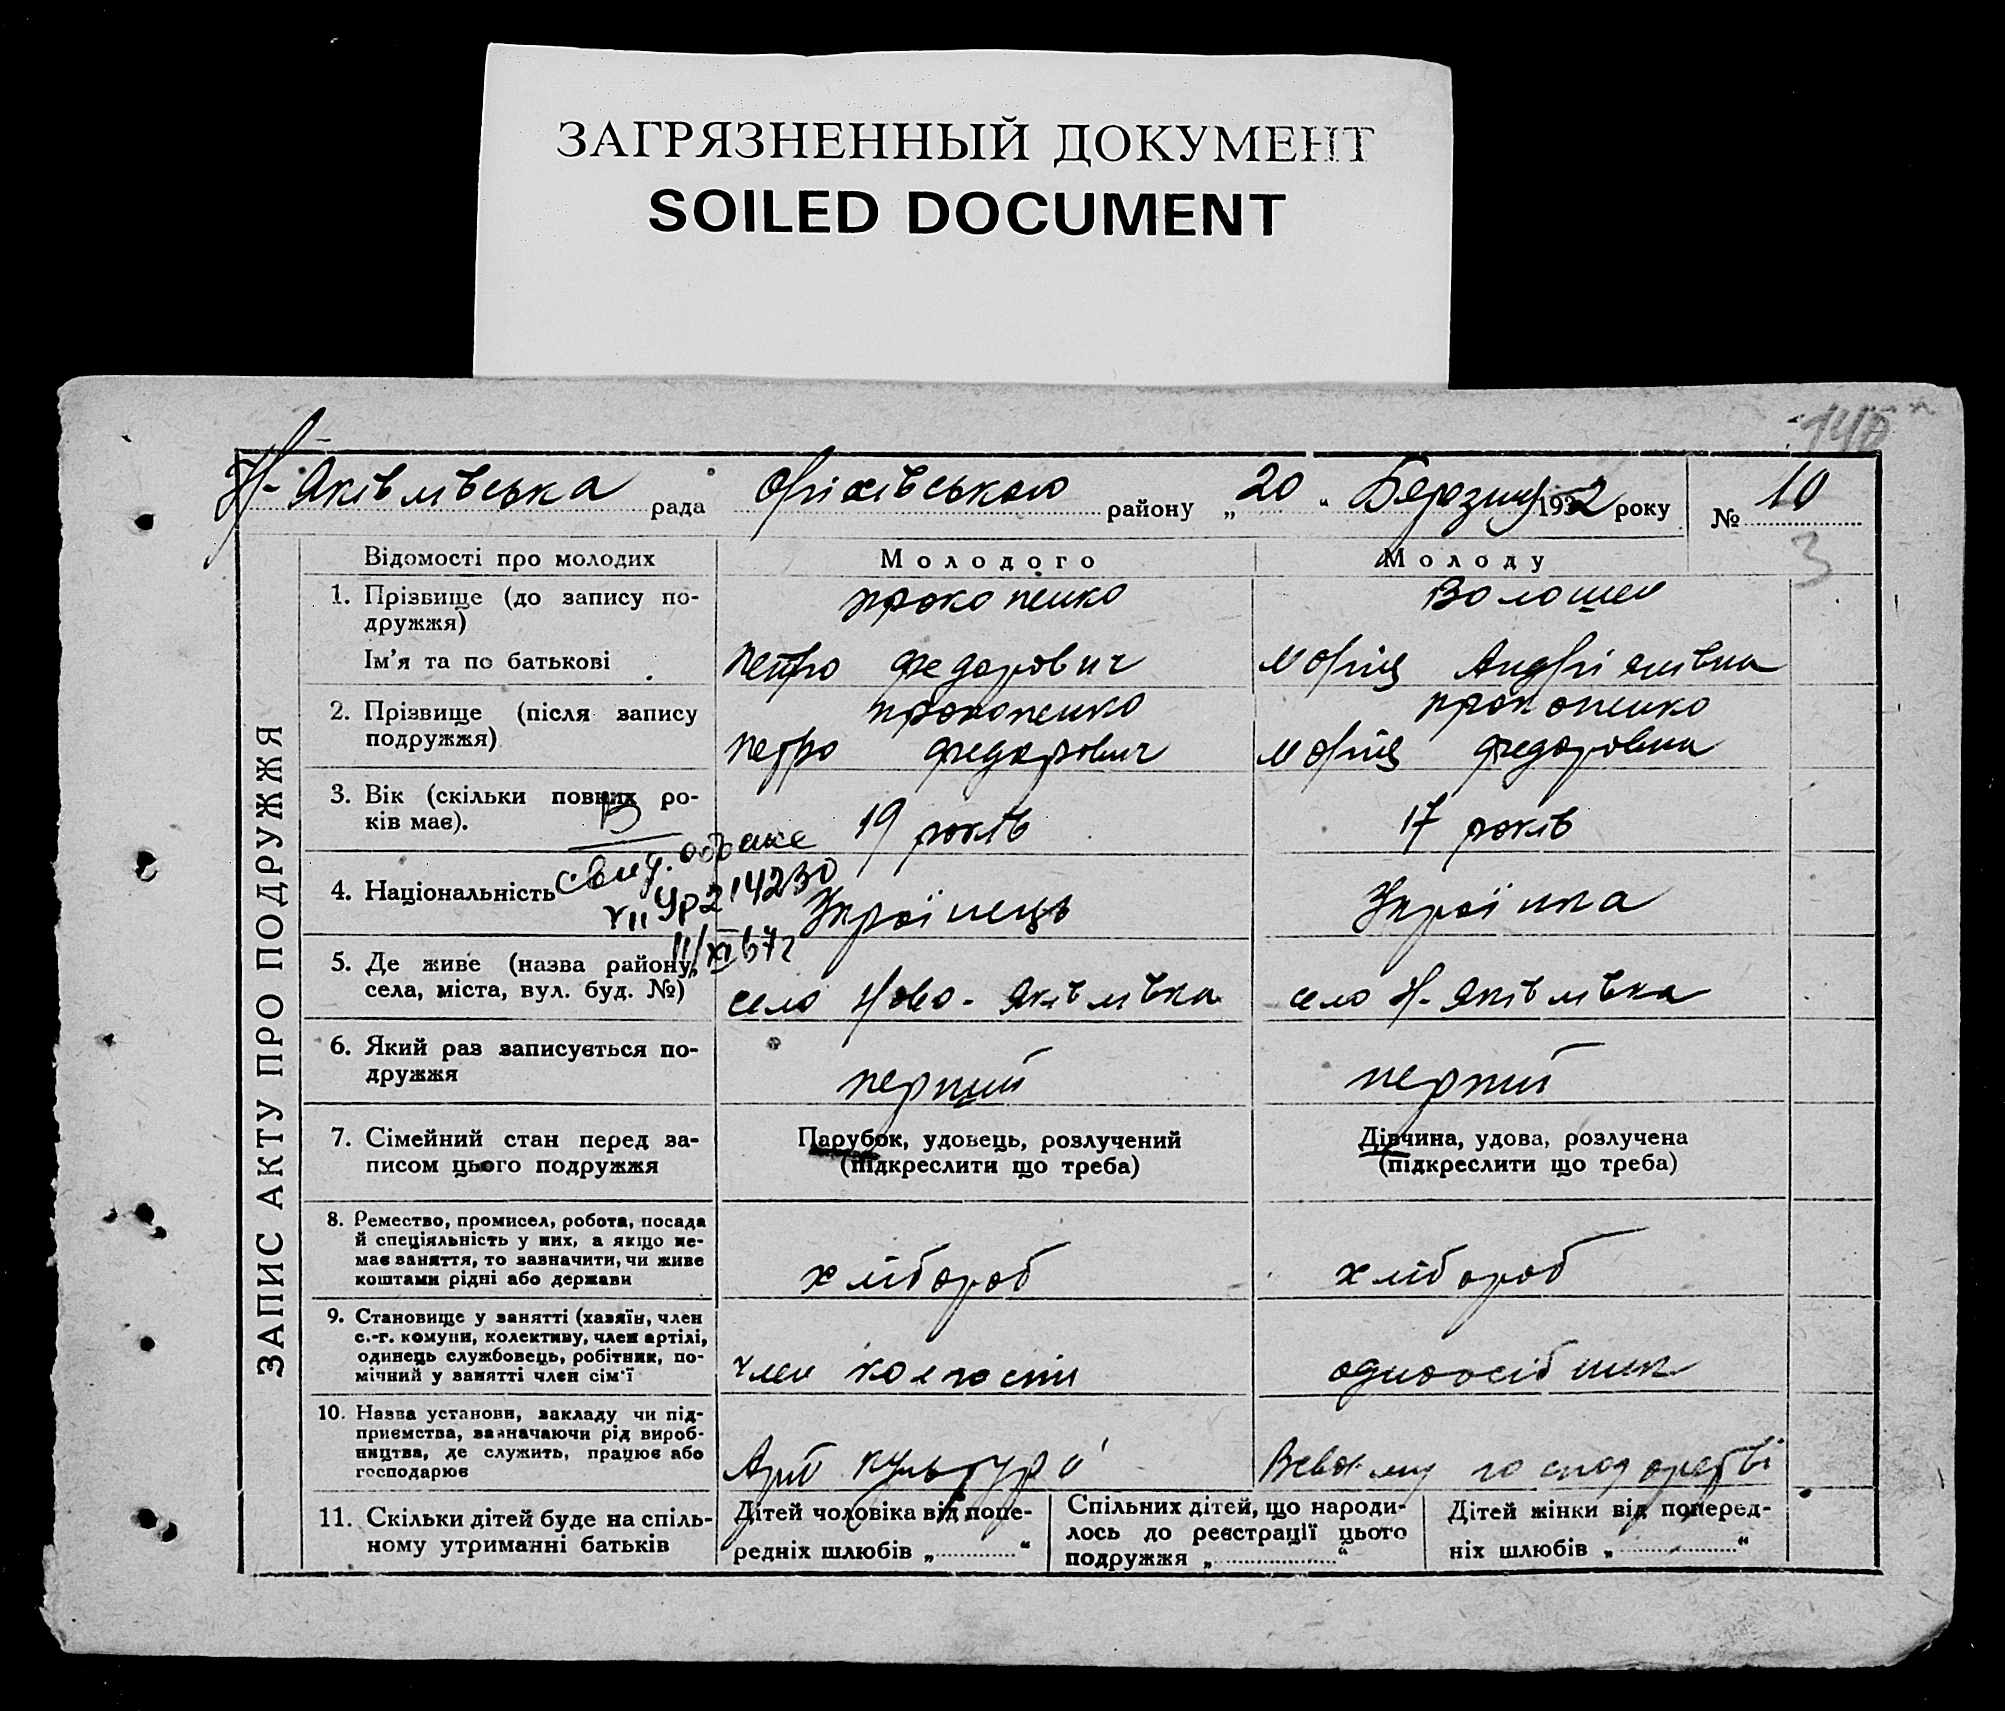 ЗАГРЯЗНЕННЫЙ ДОКУМЕНТ
SOILED DOCUMENT
Н-Яківлівська рада Оріхівського району „20“ Березня 1932 року № 10
3
ЗАПИС АКТУ ПРО ПОДРУЖЖЯ
Відомості про молодих Молодого Молоду
1. Прізвище (до запису по-
дружжя)
Прокопенко Волошен
Ім’я та по батькові Петро Федорович Марія Андріянівна
2. Прізвище (після запису
подружжя)
Прокопенко Прокопенко
Петро Федорович Марія Федоровна
3. Вік (скільки повних ро-
ків має).
19 років 17 років
4. Національність Українець Українка
214230
5. Де живе (назва району,
села, міста, вул. буд. №)
село Ново-Яківлівка село Н-Яківлівка
6. Який раз записується по-
дружжя
перший перший
7. Сімейний стан перед за-
писом цього подружжя
Парубок, удовець, розлучений
(підкреслити що треба)
Дівчина, удова, розлучена
(підкреслити що треба)
8. Ремество, промисел, робота, посада
й спеціяльність у них, а якщо не-
має заняття, то зазначити, чи живе
коштами рідні або держави
хлібороб хлібороб
9. Становище у занятті (хазяїн, член
с.-г. комуни, колективу, член артілі,
одинець службовець, робітник, по-
мічний у занятті член сім’ї
член одноосібник
10. Назва установи, закладу чи під-
приємства, зазначаючи рід вироб-
ництва, де служить, працює або
господарює
Арт культура Всвойму господарстві
11. Скільки дітей буде на спіль-
ному утриманні батьків
Дітей чоловіка від попе-
редніх шлюбів „ “
Спільних дітей, що народи-
лось до реєстрації цього
подружжя „ “
Дітей жінки від поперед-
ніх шлюбів „ “